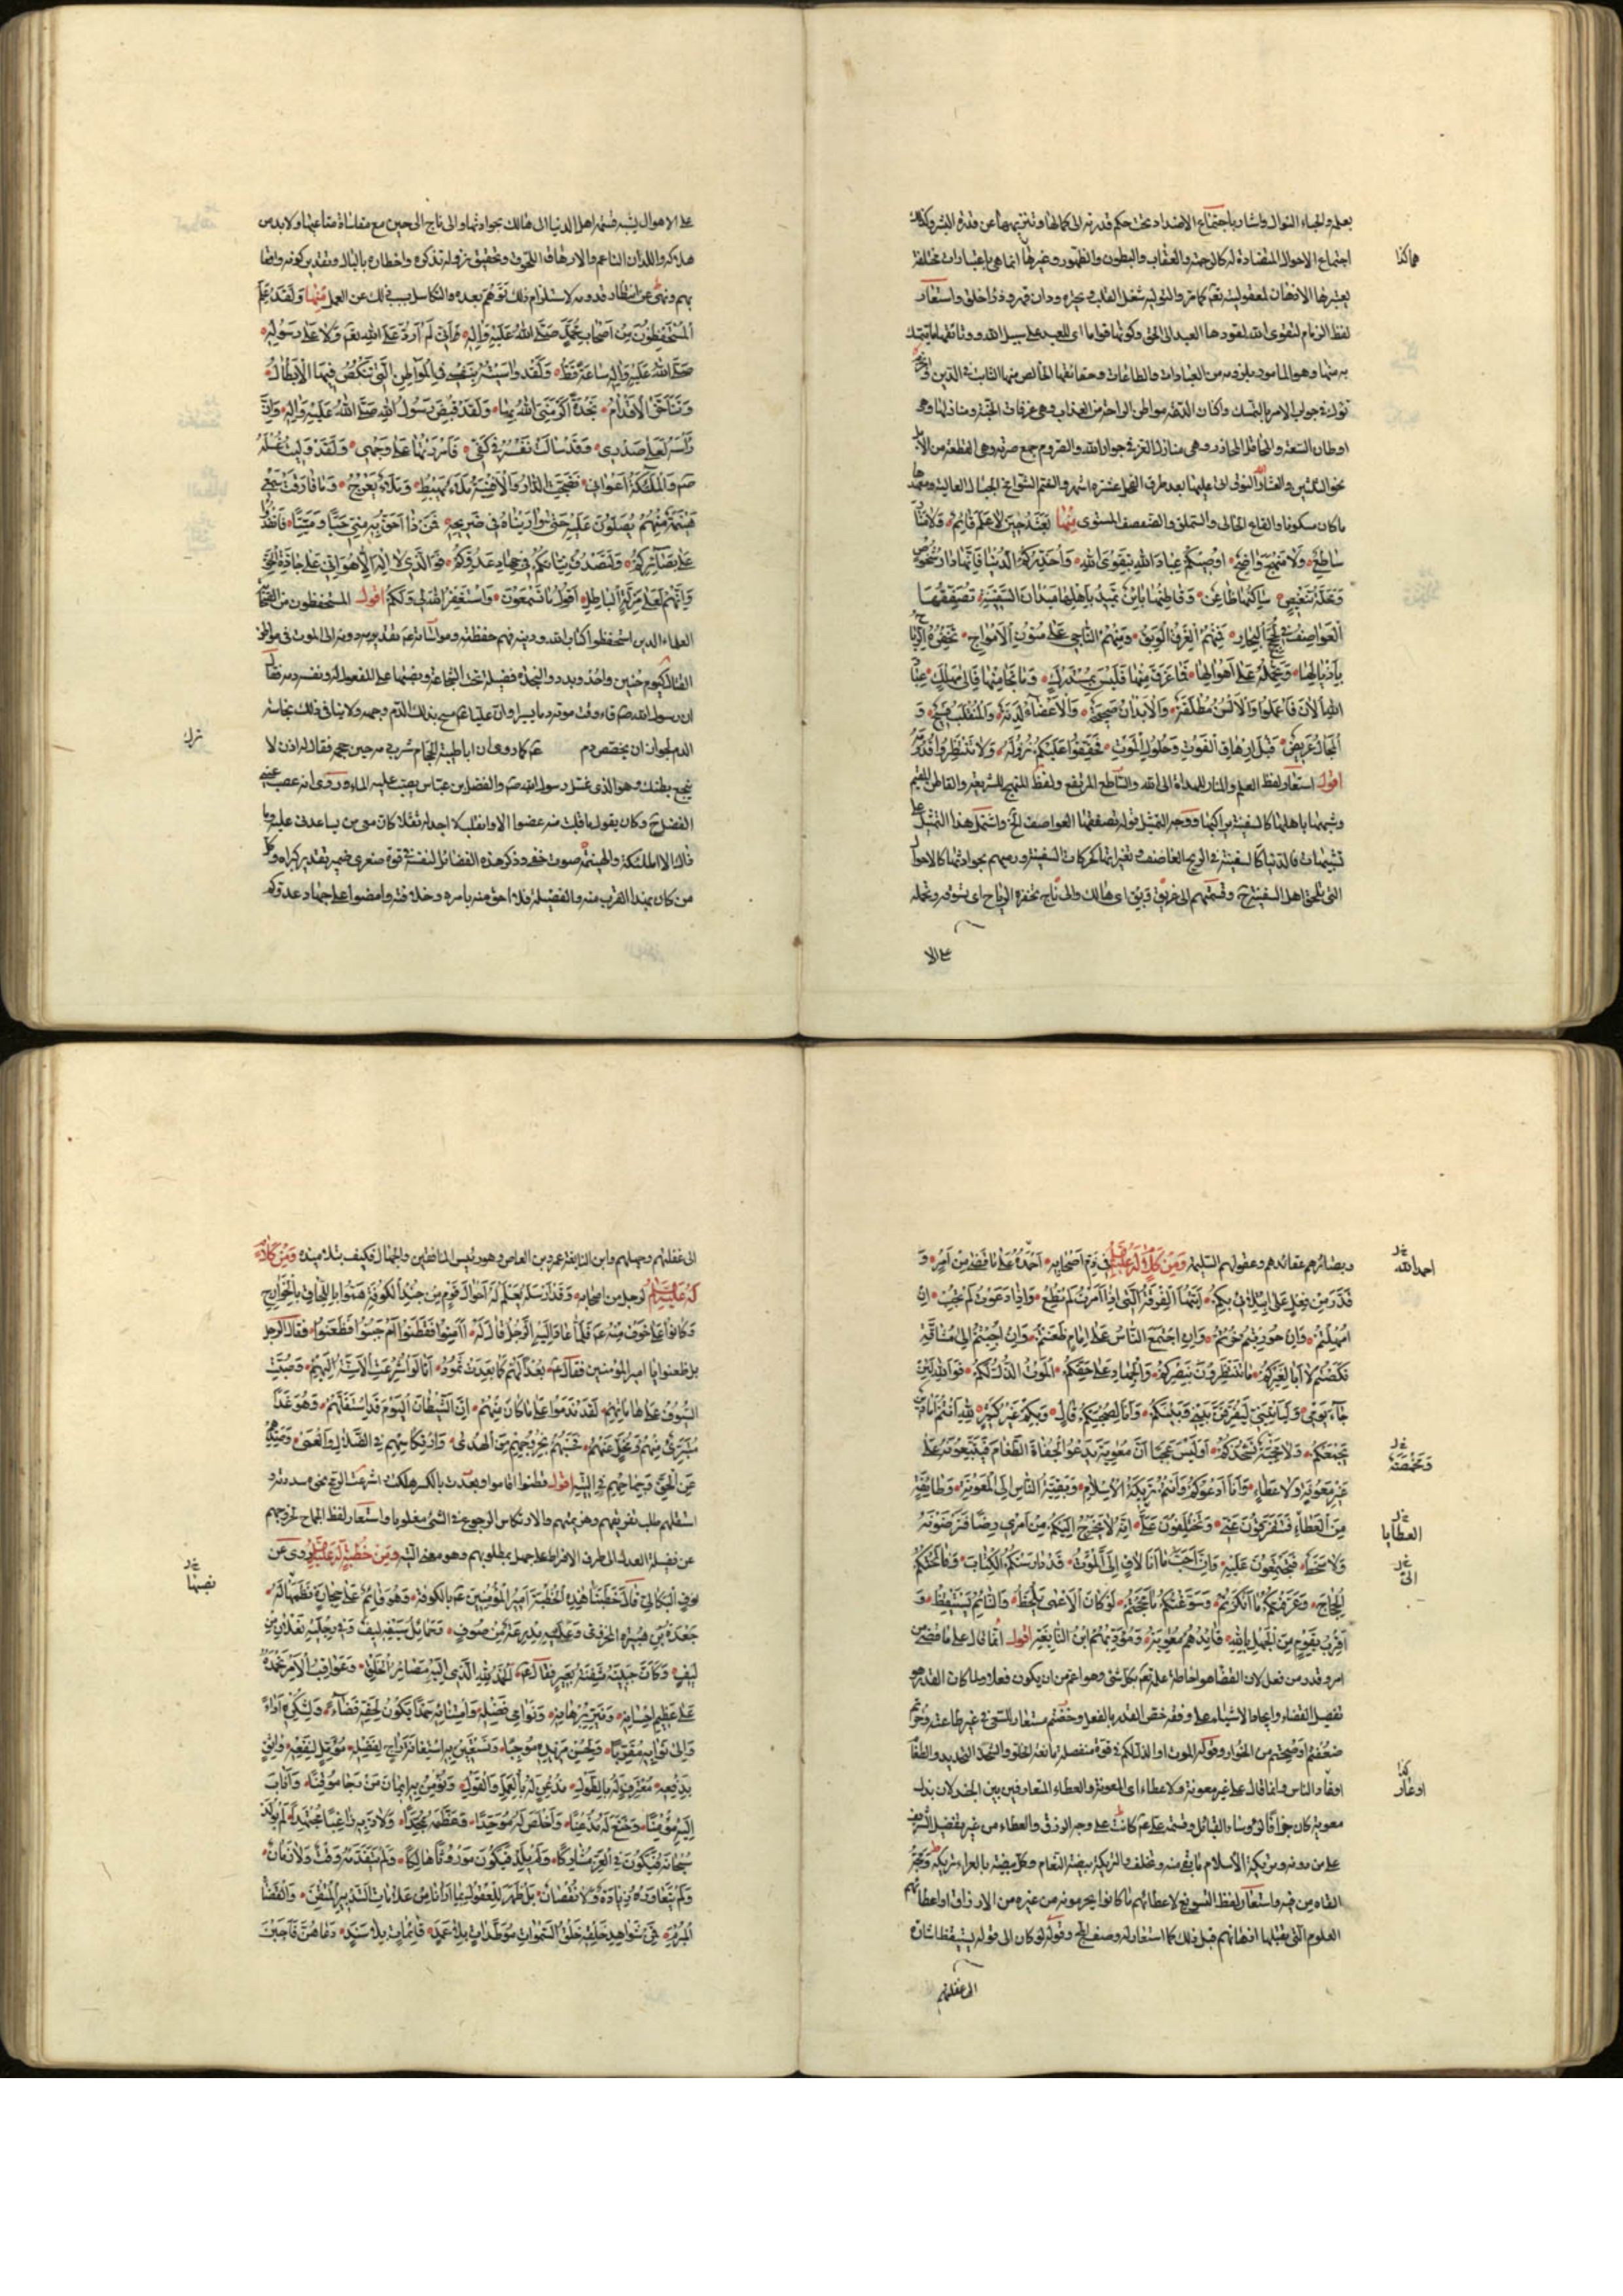 بعلمه والجباء النوال واشار باجتماع الاضداد تحت حكم قدرته الى كمالها وتنزيهها عن قدرة البشر وكذلك
اجتماع الاحوال المتضادة له كالرحمة والعقاب والبطون والظهور وغيرها انما هى باعتبارات مختلفة
هاكذا
يعتبرها الاذهان لمعقوليته تعالى كما مر
لفظ الزمام لتقوى الله لقودها العبد الى الحق وكونها قواما اى للعبد على سبيل الله ووثائقها ما يتمسك
به منها وهو المامور بلزومه من العبادات والطاعات وحقائقها الخالص منها الثابت فى الدين
تؤل جواب الامر بالتمسك واكنان الدعة مواطن الراحة من العذاب وهى غرفات الجنة ومنازلها وهى
اوطان السعة والمعاقل الحارزة وهى منازل العز فى جوار الله والصروم جمع صرمة وهى القطعة من الابل
نحو الثلثين والعشار النوق اتى عليها بعد طرق الفحل عشرة اشهر والشم الشوامخ الجبال العالية ومعهدها
ما كان مسكونا والقاع الخالى والسملق والصفصف المستوى منها بعثه حين لا علم قائم ولا منار
ساطع ولا منهج واضح اوصيكم عباد الله بتقوى الله واحذركم الدنيا فانها دار شخوص
ومحلة تنغيص ساكنها ظاعن وقاطنها بائن تميد باهلها ميدان السفينة تصفقها
العواصف فى لجج البحار فمنهم الغرق الوبق ومنهم الناجى على متون الامواج تحفزه الرياح
باذيالها وتحمله على اهوالها فما غرق منها فليس بمستدرك وما نجا منها فالى مهلك عباد
الله الان فاعملوا والالسن مطلقة والابدان صحيحة والاعضاء لدنة والمنقلب فسيح و
المجال عريض قبل ارهاق الفوت وحلول الموت فحققوا عليكم نزوله ولا تنتظروا قدومه
اقول استعار لفظ العلم والمنار للهداة الى الله والساطع المرتفع ولفظ المنهج للشريعة والقاطن المقيم
وشبهها باهلها كالسفينة براكبها ووجه التمثيل قوله تصفقها العواصف الخ واشتمل هذا التمثيل على
تشبيهات فالدنيا كالسفينة فى الريح العاصف وتغيراتها كحركات السفينة ورميهم بحوادثها كالاهوال
التى تلحق اهل السفينة وقسمتهم الى غريق وبق اى هالك والى ناج تحفزه الرياح اى تسوقه وتحمله
على الا
على الاهوال يشبه قسمة اهل الدنيا الى هالك بحوادثها والى ناج الى حين مع مقاساة متاعبها ولا بد من
هلاكه واللدان الناعم والارهاق اللحوق وتحقيق نزوله تذكره واخطاره بالبال وتقدير كونه واقعا
بهم ونهى عن انتظار قدومه لاستلزام ذلك توهم بعده والتكاسل بسبب ذلك عن العمل منها ولقد علم
المستحفظون من اصحاب محمد صلى الله عليه واله انى لم ارد على الله تعالى ولا على رسوله
صلى الله عليه واله ساعة قط ولقد واسيته بنفسى فى المواطن التى تنكص فيها الابطال
وتتاخر الاقدام نجدة اكرمنى الله بها ولقد قبض رسول الله صلى الله عليه واله وان
راسه لعلى صدرى وقد سالت نفسه فى كفى فامررتها على وجهى ولقد وليت غسله
صم والملئكة اعوانى فضجت الدار والافنية ملاء يهبط وملاء يعرج وما فارقت سمعى
هينمة منهم يصلون عليه حتى واريناه فى ضريحه فمن ذا احق به منى حيا وميتا فانفذوا
على بصائركم ولتصدق نياتكم فى جهاد عدوكم فو الذى لا اله الا هو انى على جادة الحق
وانهم لعلى مزلة الباطل اقول ما تسمعون واستغفر الله لى ولكم اقول المستحفظون من الصحابة
العلماء الذين استحفظوا كتاب الله ودينه
القتال كيوم حنين واحد وبدر والنجدة فضيلة تحت الشجاعة ونصبها على المفعول له ونفسه دمه فقال
ان رسول الله صم قاء وقت موته دما يسيرا وان عليا عم مسح بذلك الدم وجهه ولا ينافى ذلك نجاسة
الدم لجواز ان يخصص دم عم كما روى ان ابا طيبة الحجام شرب دمه حين حجمه فقال له اذن لا
نزل
يجع بطنك وهو الذى غسل رسول الله صم والفضل ابن عباس يصب عليه الماء وروى انه عصب عينى
الفضل ح وكان يقول ما قلبت منه عضوا الا وانقلب لا اجد له ثقلا كان معى من يساعدنى عليه وما
ذلك الا الملئكة والهينمة صوت خفى وذكر هذه الفضائل لنفسه فى قوة صغرى ضمير تقدير كبراه وكل
من كان بهذا القرب منه والفضيلة فلا احق منه بامره وخلافته وامضوا على جهاد عدوكم
وبصائرهم عقائدهم وعقولهم السليمة ومن كلام له عليه السلم فى ذم اصحابه احمده على ما قضى من امر و
احمد الله
قدر من فعل على ابتلائى بكم ايتها الفرقة التى اذا امرت لم تطع واذا دعوت لم تجب ان
امهلتم خضتم وان حوربتم خرتم وان اجتمع الناس على امام طعنتم وان اجبتم الى مشاقة
نكصتم لا ابا لغيركم ما تنتظرون بنصركم والجهاد على حقكم الموت او الذل لكم فو الله لئن
جاء يومى ولياتينى ليفرقن بينى وبينكم وانا لصحبتكم قال وبكم غير كثير لله انتم اما دين
يجمعكم ولا محمية تشحذكم او ليس عجبا ان معوية يدعو الجفاة الطغام فيتبعونه على
وتحمضه
غير معونة ولا عطاء وانا ادعوكم وانتم تريكة الاسلام وبقية الناس الى المعونة وطائفة
من العطاء فتتفرقون عنى وتختلفون على انه لا يخرج اليكم من امرى رضا فترضونه
العطايا
ولا سخط فتجتمعون عليه وان احب ما انا لاق الى الموت قد دارستكم الكتاب وفاتحتكم
الى
الحجاج وعرفتكم ما انكرتم وسوغتكم ما مججتم لو كان الاعمى يلحظ والنائم يستيقظ و
اقرب بقوم من الجهل بالله قائدهم معوية ومؤدبهم ابن النابغة اقول انما قال على ما قضى من
امر وقدر من فعل لان القضا هو احاطة علمه تعالى بكل شئ وهو اعم من ان يكون فعلا ولما كان القدر هو
تفصيل القضاء وايجاد الاشياء على وفقه خص القدر بالفعل وخضتم مستعار للسعى فى غير طاعته وخرتم
ضعفتم او صحتم من الخوار وقوله الموت او الذل لكم فى قوة منفصلة مانعة الخلو والشحذ التحديد والطغام
اوغاد الناس وانما قال على غير معونة ولا عطاء اى المعونة والعطاء المتعارفين بين الجند لان بذل
اوغاد
معوية كان جزافا لرؤساء القبائل وقسمة على عم كانت على وجه الرزق والعطاء من غير تفضيل لشريف
على من دونه وتريكة الاسلام ما بقى منه وتخلف والتريكة بيضة النعام وكل بيضة بالعراء تريكة ومججه
القاه من فيه واستعار لفظ التسويغ لاعطائهم ما كانوا يحرمونه من غيره من الارزاق او اعطائهم
العلوم التى يقبلها اذهانهم قبل ذلك كما استعار له وصف المج وقوله لو كان الى قوله يستيقظ اشارة
الى غفلتهم
الى غفلتهم وجهلهم وابن النابغة عمرو بن العاص وهو رئيس المنافقين واجهال فكيف بتلاميذه ومن كلام
له عليه السلم لرجل من اصحابه وقد ارسله يعلم له احوال قوم من جند الكوفة هموا باللحاق بالخوارج
وكانوا على خوف منه عم فلما عاد اليه الرجل قال له اامنوا فقطنوا ام جبنوا فظعنوا فقال الرجل
بل ظعنوا يا امير المؤمنين فقال عم بعدا لهم كما بعدت ثمود اما لو اشرعت الاسنة اليهم وصبت
السيوف على هاماتهم لقد ندموا على ما كان منهم ان الشيطان اليوم قد استفلهم وهو غدا
متبرئ منهم ومتخل عنهم فحسبهم بخروجهم من الهدى وارتكاسهم فى الضلال والعمى وصدهم
عن الحق وجماحهم فى التيه اقول قطنوا اقاموا وبعدت بالكسر هلكت اشرعت الرمح نحوه سددته و
استفلهم طلب تفريقهم وهزيمتهم والارتكاس الرجوع فى الشئ مغلوبا واستعار لفظ الجماح لخروجهم
عن فضيلة العدل الى طرف الافراط على جهل بمطلوبهم وهو معنى التيه ومن خطبة له عليه السلم روى عن
نوف البكالى قال خطبنا هذه الخطبة امير المؤمنين عم بالكوفة وهو قائم على حجارة نصبها له
نصبها
جعدة بن هبيرة المخزومى وعليه مدرعة من صوف وحمائل سيفه ليف وفى رجليه نعلان من
ليف وكان جبينه ثفنة بعير فقال عم الحمد لله الذى اليه مصائر الخلق وعواقب الامر نحمده
على عظيم احسانه ونير برهانه ونوامى فضله وامتنانه حمدا يكون لحقه قضاء ولشكره اداء
والى ثوابه مقربا ولحسن مزيده موجبا ونستعين به استعانة راج لفضله مؤمل لنفعه واثق
بدفعه معترف له بالطول مذعن له بالعمل والقول ونؤمن به ايمان من رجاه موقنا واناب
اليه مؤمنا وخنع له مذعنا واخلص له موحدا وعظمه ممجدا ولاذ به راغبا مجتهدا لم يولد
سبحانه فيكون فى العز مشاركا ولم يلد فيكون موروثا هالكا ولم يتقدمه وقت ولا زمان
ولم يتعاوره زيادة ولا نقصان بل ظهر للعقول بما ارانا من علامات التدبير المتقن والقضاء
المبرم فمن شواهد خلقه خلق السموات موطدات بلا عمد قائمات بلا سند دعاهن فاجبن